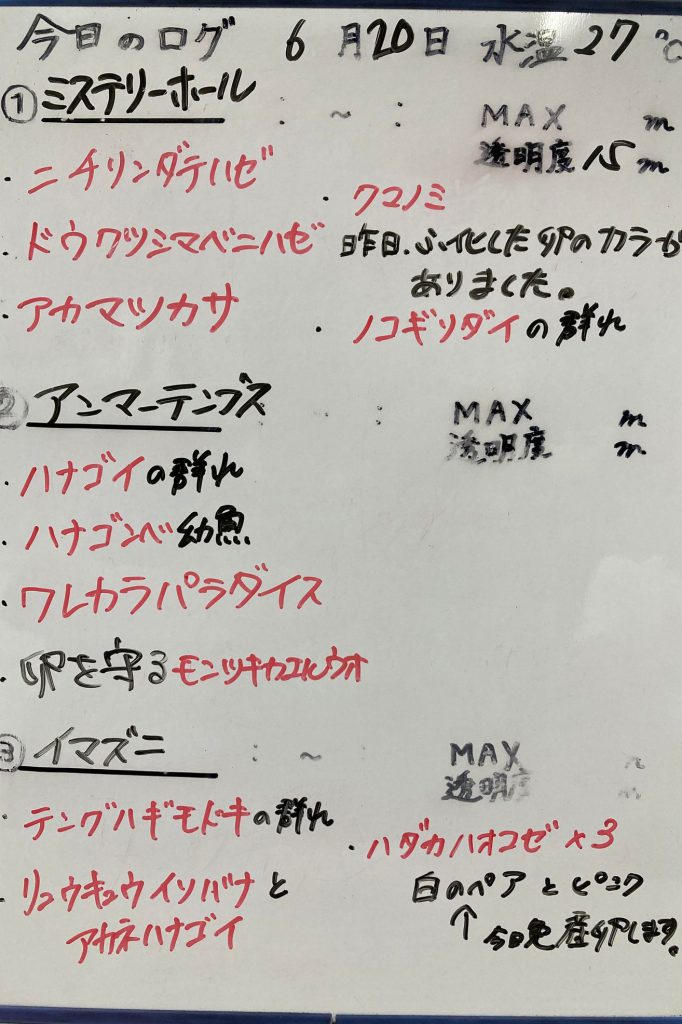 今日のログ 6月20日 水温27℃
①ミステリーホール : ~ : MAX m
透明度 15 m
・ニチリンダテハゼ
・クマノミ
・ドウクツシマベニハゼ
昨日、ふ化した卵のカラが
ありました。
・アカマツカサ
・ノコギリダイの群れ
②アンマーテンブス : : MAX m
透明度 m
・ハナゴイの群れ
・ハナゴンベ幼魚
・ワレカラパラダイス
・卵を守るモンツキカエルウオ
③イマズニ : ~ MAX m
透明度 m
・テングハギモドキの群れ
・ハダカハオコゼ×3
白のペアとピンク
↑今日産卵します。
・リュウキュウイソバナと
アカネハナゴイ